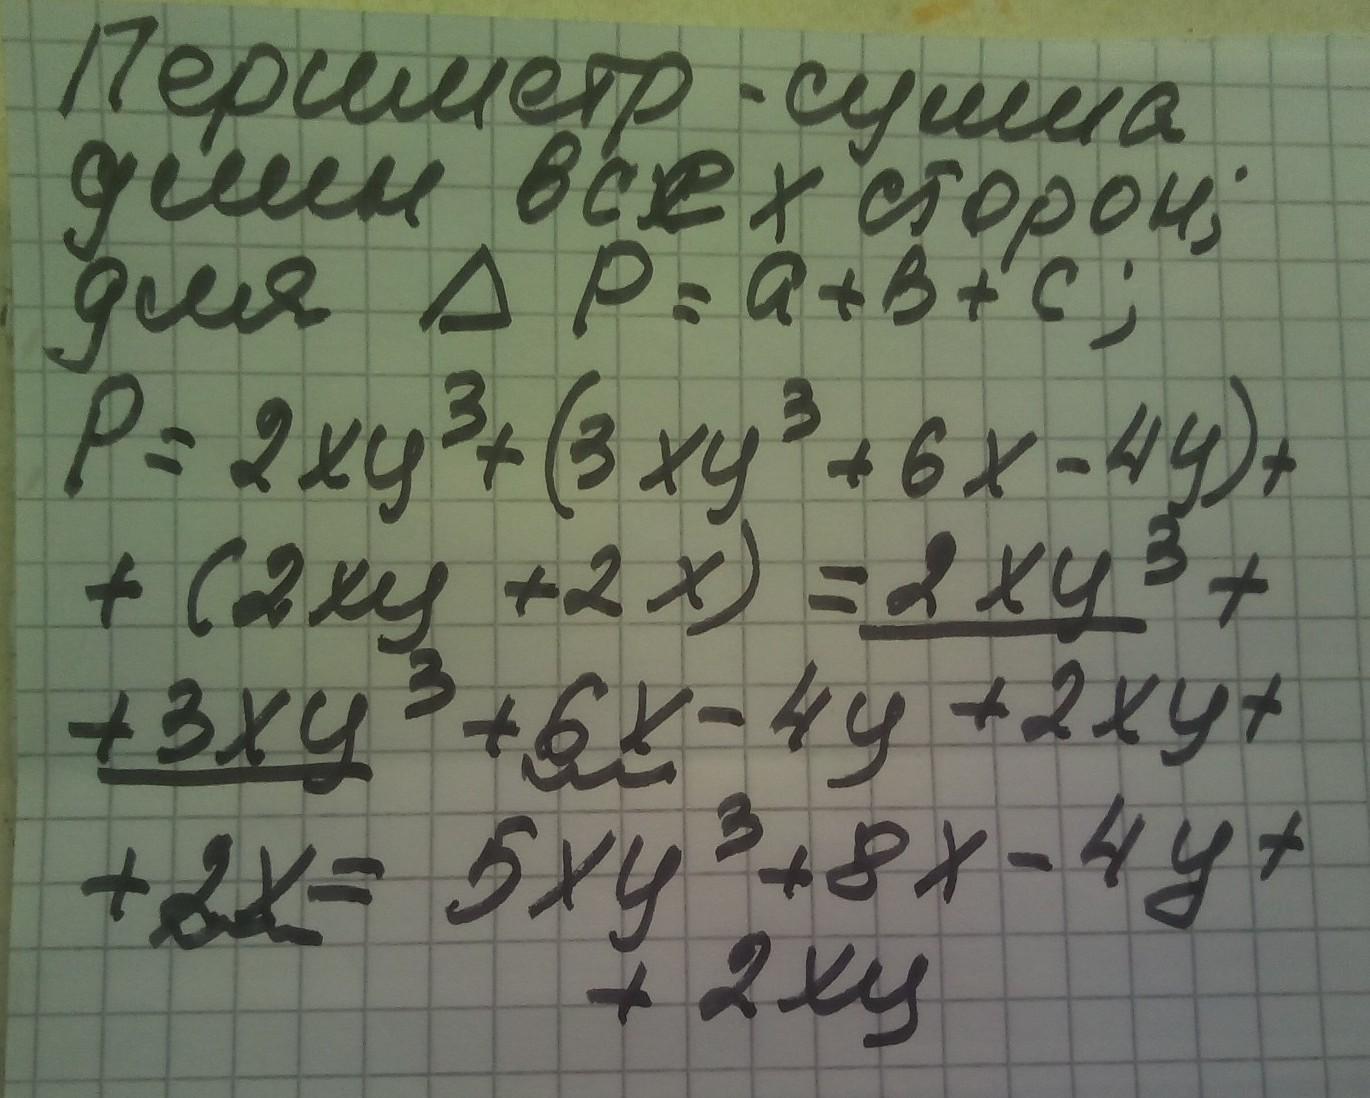 Периметр - сумма
длин всех сторон;
для Δ P = a + в + c;
P = 2xy³ + (3xy³ + 6x - 4y) +
+ (2xy + 2x) = 2xy³ +
+ 3xy³ + 6x - 4y + 2xy +
+ 2x = 5xy³ + 8x - 4y +
+ 2xy